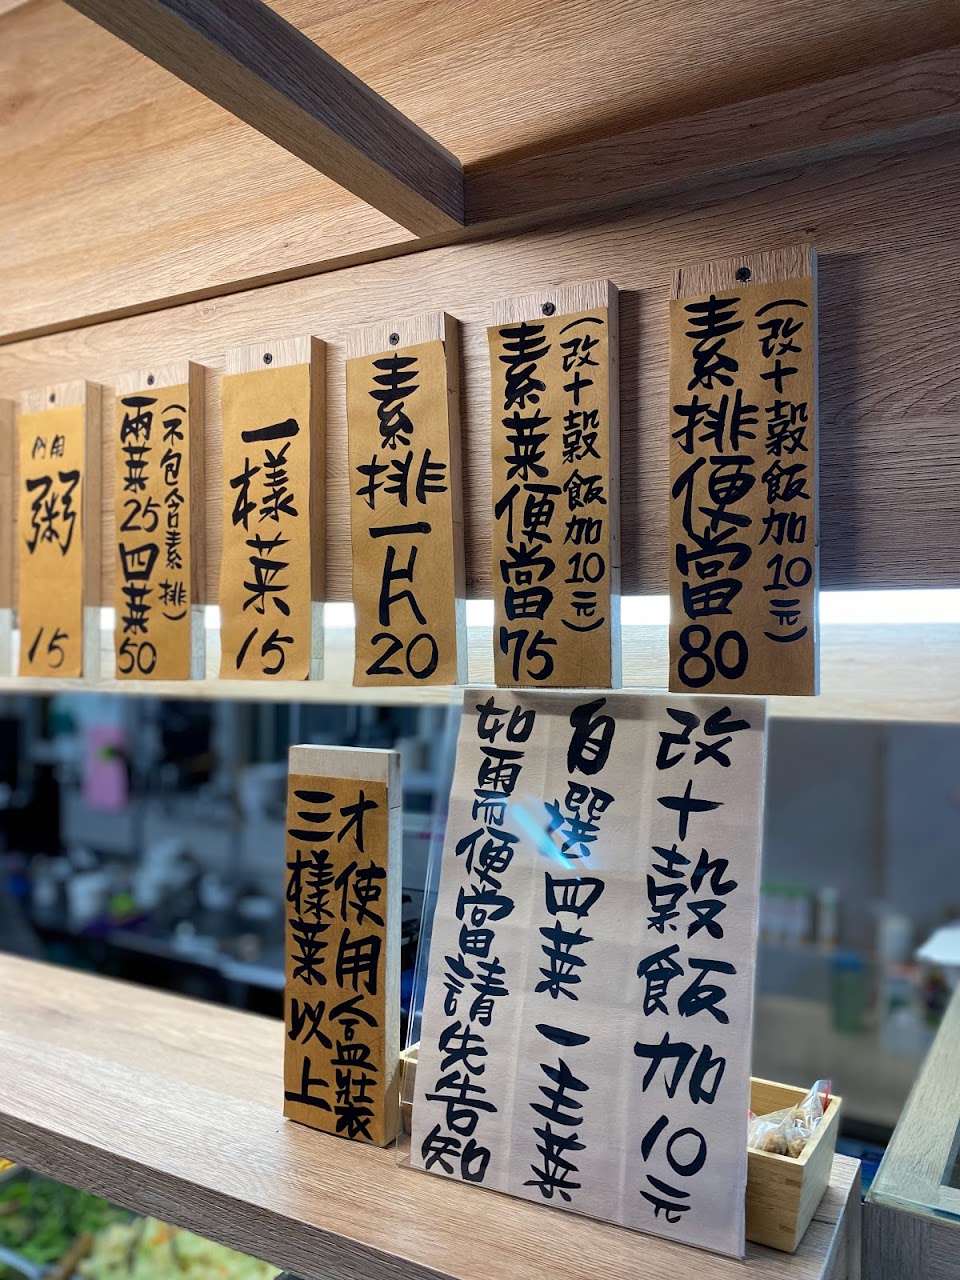 內用
粥15
兩菜25四菜50
(不包含素排)
一樣菜15
素排一片20
素菜便當75
(改十穀飯加10元)
素排便當80
(改十穀飯加10元)
三樣菜以上
才使用盒裝
如需便當請先告知
自選四菜一主菜
改十穀飯加10元